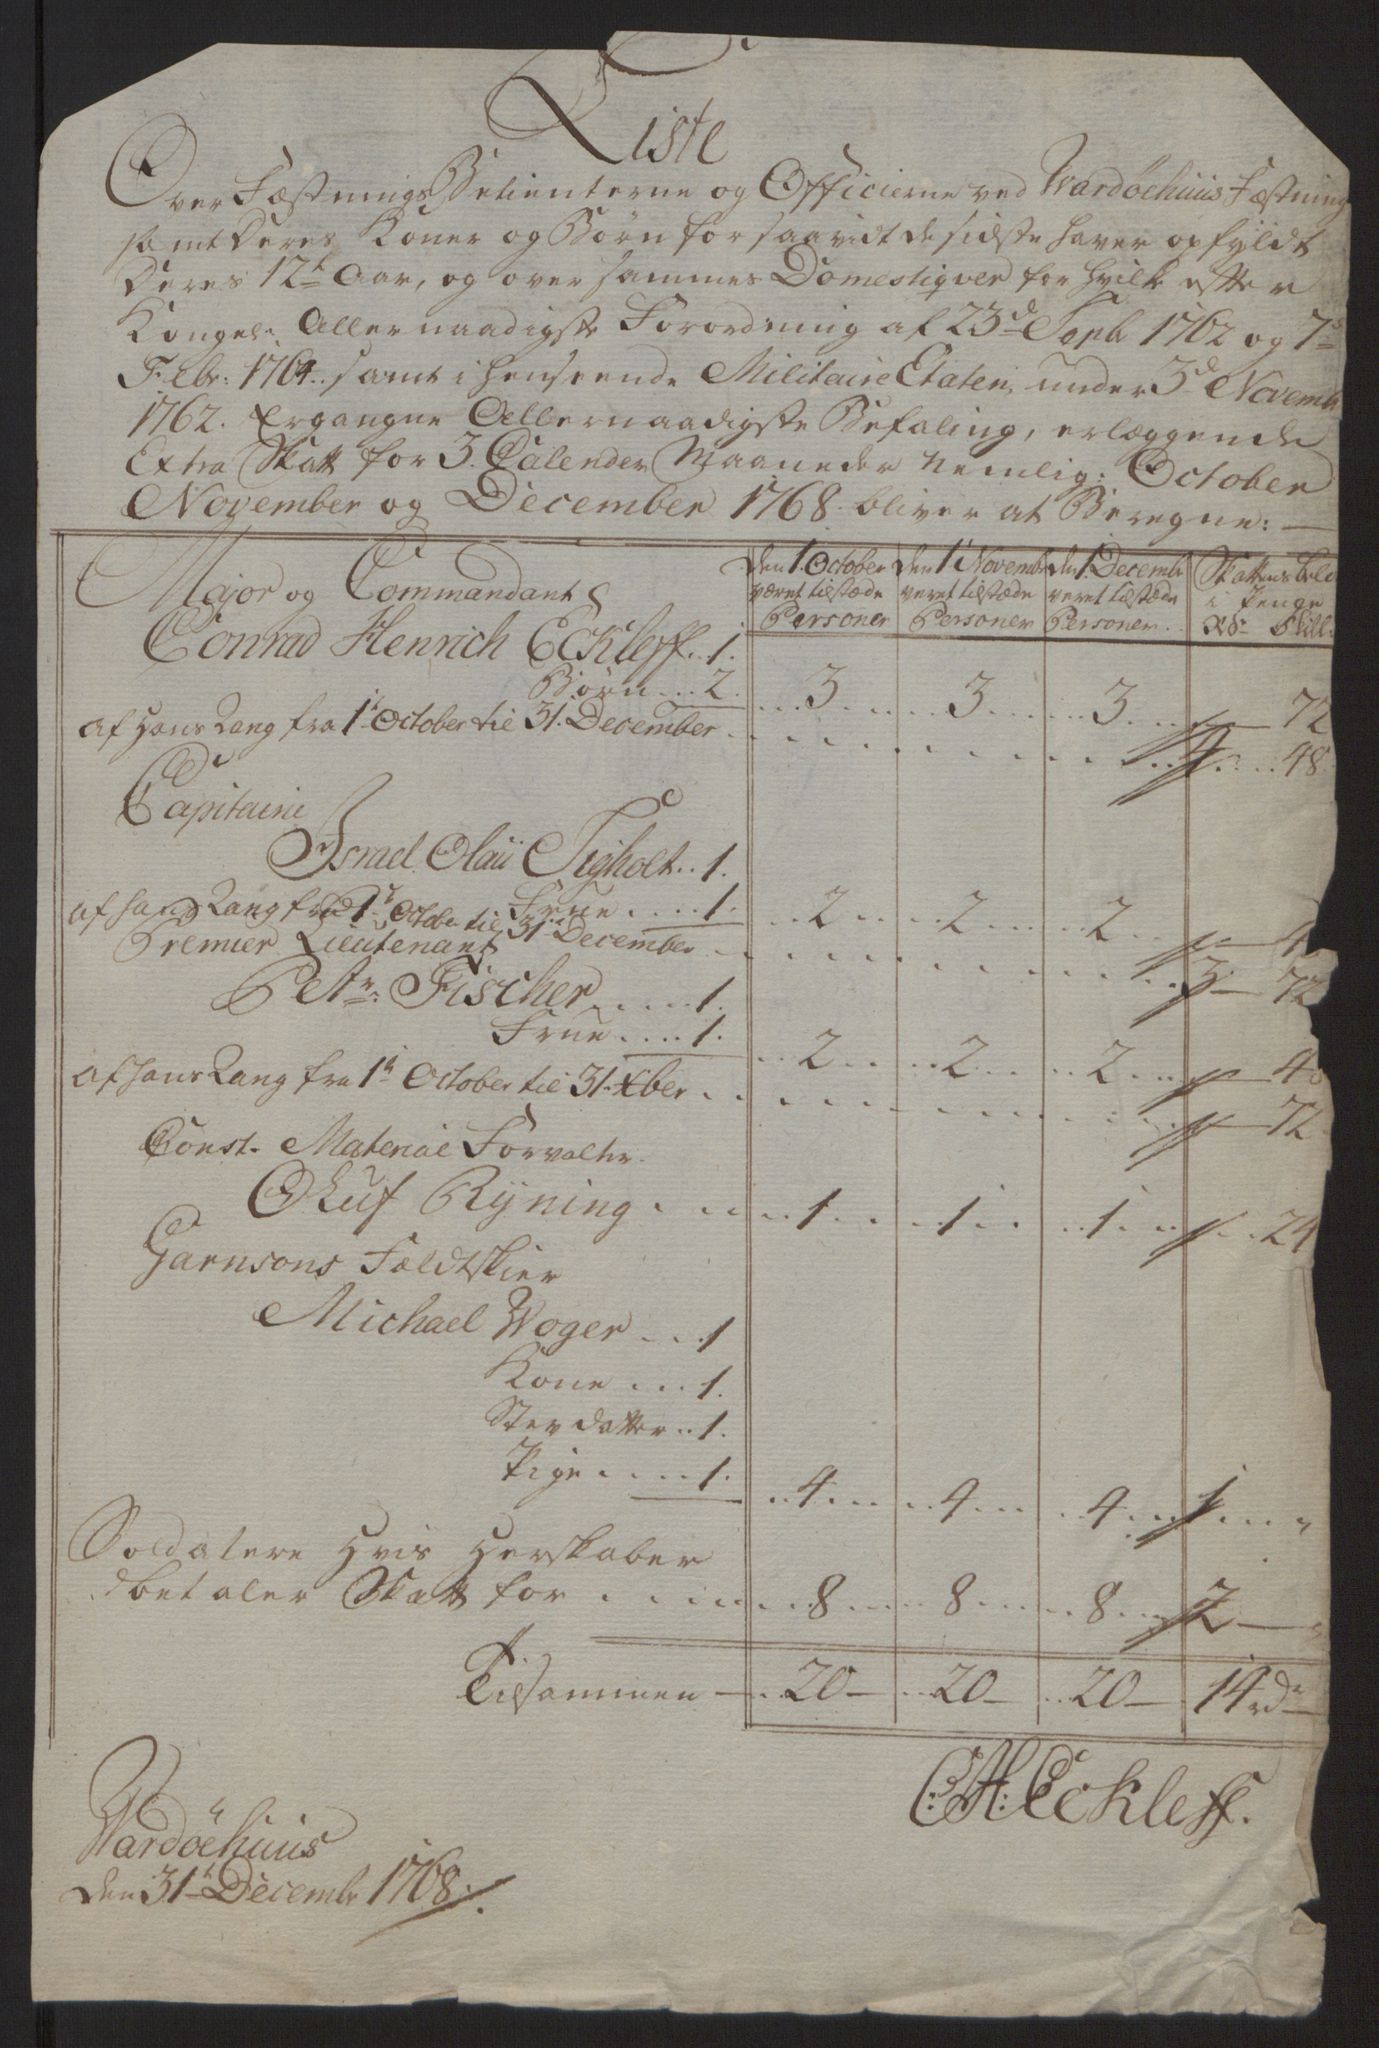 Liste
Over Fæstnings Betienterne og Officierne ved Wardöehuus Fæstning
samt Deres Koner og Börn for saavidt de sidste haver opfyldt
Deres 12te Aar, og over sammes Domestiqver for hvilke efter
Kongel: Allernaadigste Forordning af 23de Septb 1762 og 7de
Febr: 1764. samt i henseende Militaire Etaten, under 3de Novembr
1762. Ergangne Allernaadigste Befaling, erlæggende
Extra Skatt for 3. Calender Maaneder nemlig: October
November og December 1768 bliver at Beregne:
den 1. October den 1t November den 1. Decembr Skattens beløb
været tilstæde været tilstæde været tilstæde i Penge
Personer Personer Personer. Rd Skill:
Major og Commandant
Conrad Henrich Eckleff .. 1.
Börn .... 2. 3 3 3 72
af Hans Rang fra 1t October til 31. December 4 .. 48
Capitaine
Israel Olai Tigholt .. 1.
Frue .... 1. 2 2 2
af hans Rang fra 1t October til 31. December 3 72
Premier Lieutenant
Petr: Fischer .... 1.
Frue .... 1. 2 2 2 48
af hans Rang fra 1t October til 31. Xber 72
Const. Material Forvalter.
Oluf Ryning 1 1 1 24
Garnisons Feldtskier
Michael Woger ... 1
Kone ... 1.
Stevdatter .. 1.
Pige .... 1. 4 4 4 1 "
Soldatere Hvis Herskaber
betaler Skatt for 8 8 8 2 "
Tilsammen 20 20 20 14 rd
C: H: Eckleff.
Wardöehuus
den 31te Decembr 1768.